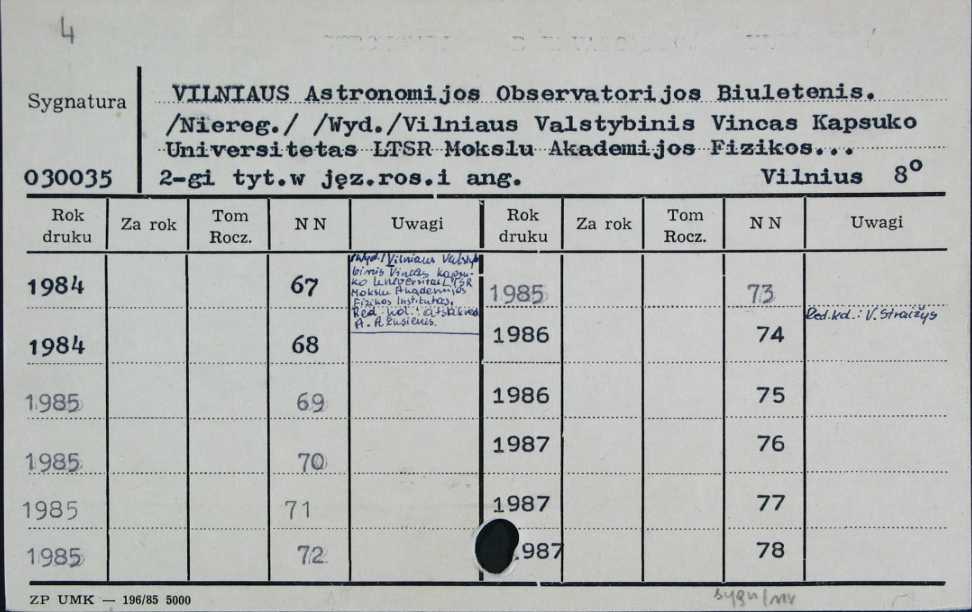 4
Sygnatura
VILNIAUS Astronomijos Observatorijos Biuletenis.
/Niereg./ /Wyd./Vilniaus Valstybinis Vincas Kapsuko
Universitetas LTSR Mokslu Akademijos Fizikos...
030035 2-gi tyt.w jęz.ros.i ang. Vilnius 8°
Rok druku Za rok Tom Rocz. N N Uwagi Rok druku Za rok Tom Rocz. N N Uwagi
1984 67
/Wyd./Vilniaus Valsty-
binis Vincas Kapsu-
ko Universitet. LTSR
Mokslu Akademijos
Fizikos Institutas.
Red. kol.:
1984 68
1985 69
1985 70
1985 71
1985 72
1985 73
Red.kol.: V. Straižys
1986 74
1986 75
1987 76
1987 77
987 78
ZP UMK — 196/85 5000